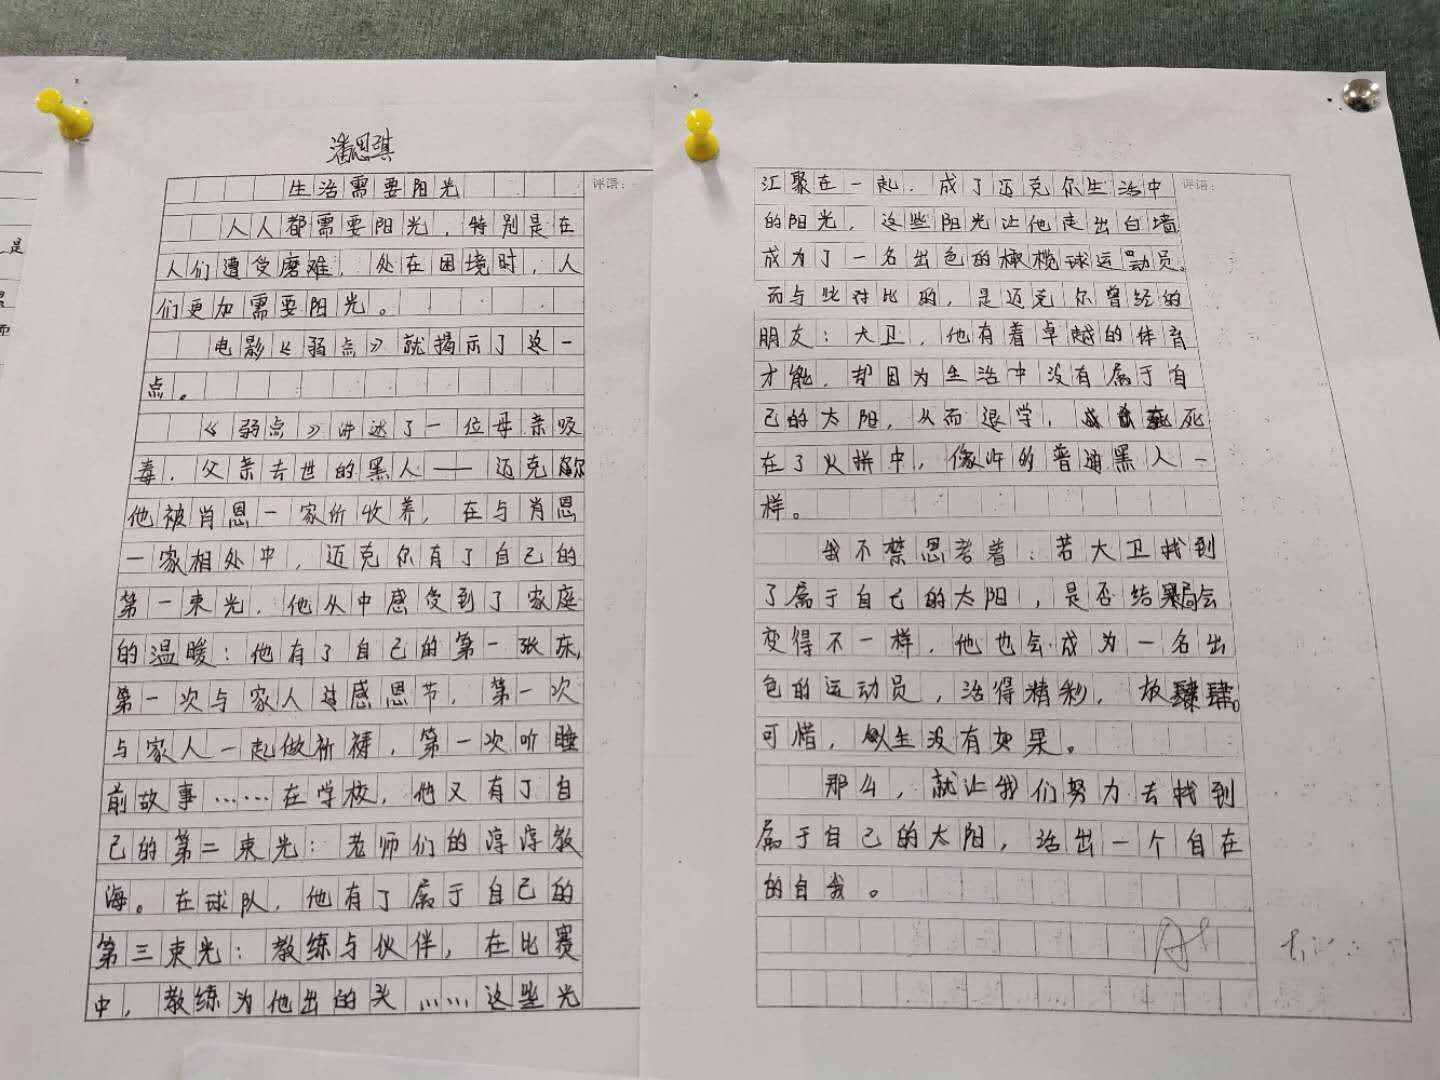 潘思琪
生活需要阳光
评语:
人人都需要阳光，特别是在
人们遭受磨难，处在困境时，人
们更加需要阳光。
电影《弱点》就揭示了这一
点。
《弱点》讲述了一位母亲吸
毒，父亲去世的黑人——迈克尔
他被肖恩一家所收养，在与肖恩
一家相处中，迈克尔有了自己的
第一束光，他从中感受到了家庭
的温暖：他有了自己的第一张床，
第一次与家人过感恩节，第一次
与家人一起做祈祷，第一次听睡
前故事……在学校，他又有了自
己的第二束光：老师们的淳淳教
海。在球队，他有了属于自己的
第三束光：教练与伙伴，在比赛
中，教练为他出的头……这些光
汇聚在一起，成了迈克尔生活中
评语:
的阳光，这些阳光让他走出白墙
成为了一名出色的橄榄球运动员。
而与此对比的，是迈克尔曾经的
朋友：大卫，他有着卓越的体育
才能，却因为生活中没有属于自
己的太阳，从而退学，死
在了火拼中，像许的普通黑人一
样。
我不禁思考着：若大卫找到
了属于自己的太阳，是否结局会
变得不一样，他也会成为一名出
色的运动员，活得精彩，放肆。
可惜，人生没有如果。
那么，就让我们努力去找到
属于自己的太阳，活出一个自在
的自我。